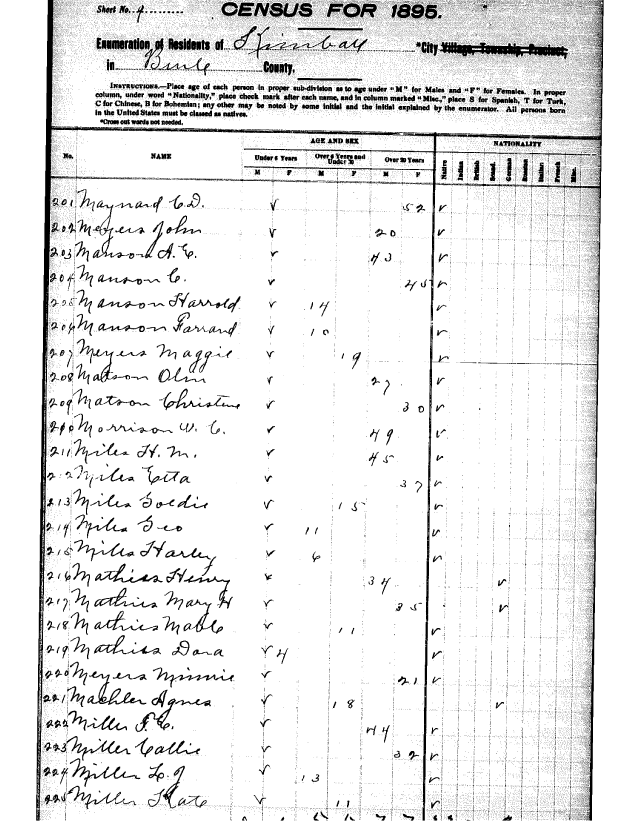 Sheet No. 4
CENSUS FOR 1895.
Enumeration of Residents of Kimball *City Village, Township, Precinct,
in Brule County.
INSTRUCTIONS.—Place age of each person in proper sub-division as to age under "M" for Males and "F" for Females. In proper
column, under word "Nationality," place check mark after each name, and in column marked "Misc.," place S for Spanish, T for Turk,
C for Chinese, B for Bohemian; any other may be noted by some initial and the initial explained by the enumerator. All persons born
in the United States must be classed as natives.
*Cross out words not needed.
AGE AND SEX NATIONALITY
No. NAME Under 6 Years Over 6 Years and Under 20 Over 20 Years Native Indian British Scand. German Russian Italian French Misc.
M F M F M F
201 Maynard C.D. ✓ 52 ✓
202 Meyers John ✓ 20 ✓
203 Manson A.E. ✓ 43 ✓
204 Manson C. ✓ 45 ✓
205 Manson Harrold ✓ 14 ✓
206 Manson Farrand ✓ 10 ✓
207 Meyers Maggie ✓ 19 ✓
208 Matson ✓ 27 ✓
209 Matson Christine ✓ 30 ✓
210 Morrison W.C. ✓ 49 ✓
211 Miles H.M. ✓ 45 ✓
212 Miles Etta ✓ 37 ✓
213 Miles Goldie ✓ 15 ✓
214 Miles Geo ✓ 11 ✓
215 Miles Harley ✓ 6 ✓
216 Mathies Henry ✓ 34 ✓
217 Mathies Mary H ✓ 35 ✓
218 Mathies Mable ✓ 11 ✓
219 Mathies Dora ✓ 4 ✓
220 Meyers Minnie ✓ 21 ✓
221 Machler Agnes ✓ 18 ✓
222 Miller F.E. ✓ 44 ✓
223 Miller Callie ✓ 32 ✓
224 Miller L.J ✓ 13 ✓
225 Miller Kate ✓ 11 ✓